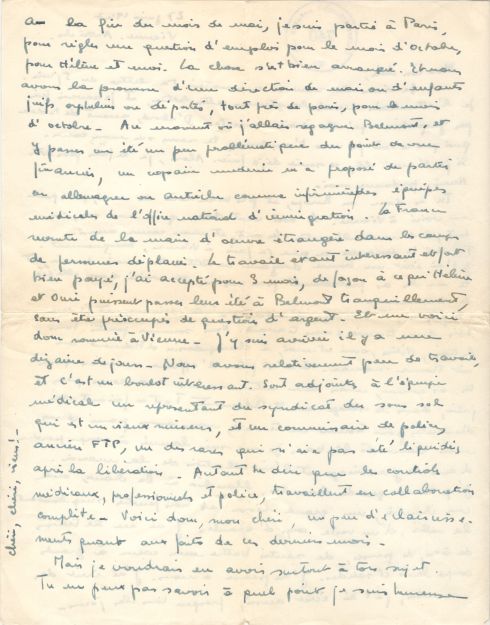 A la fin du mois de mai, je suis partie à Paris,
pour régler une question d'emploi pour le mois d'octobre,
pour Hélène et moi. La chose s'est bien arrangée. Et nous
avons la promesse d'une direction de maison d'enfants
juifs orphelins ou déportés, tout près de paris, pour le mois
d'octobre - Au moment où j'allais regagner Belmont, et
y passer un été un peu problématique du point de vue
financier, un copain médecin m'a proposé de partir
en allemagne ou autriche comme infirmière équipes
médicales de l'office national d'immigration. La France
recrute de la main d'oeuvre étrangère dans les camps
de personnes déplacées. Le travail étant intéressant et fort
bien payé, j'ai accepté pour 3 mois, de façon à ce qu'Hélène
et puissent passer leur été à Belmont tranquillement,
sans être préoccupés de questions d'argent. Et me voici
donc à Vienne - J'y suis arrivée il y a une
dizaine de jours - Nous avons relativement peu de travail,
et c'est un boulot intéressant. Sont adjoints à l'équipe
médicale un représentant du syndicat du sous sol
qui est un vieux mineur, et un commissaire de police,
ancien FTP, un des rares qui n'aie pas été liquidés
après la libération - Autant te dire que les contrôles
médicaux, professionnels et police, travaillent en collaboration
complète - Voici donc, mon chéri, un peu d'éclaircisse-
ments quant aux faits de ces derniers mois -
Mais je voudrais en avoir surtout à ton sujet.
Tu ne peux pas savoir à quel point je suis heureuse
chéri, chéri, viens! -